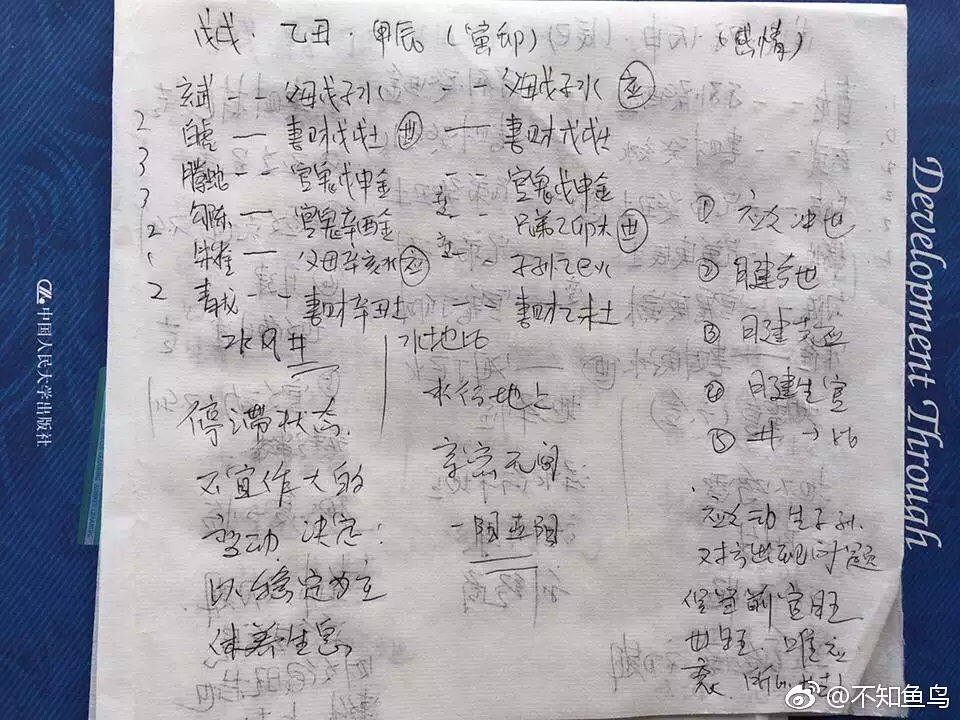 戊戌·乙丑·甲辰(寅卯) (感情)
玄武 -- 父母戊子水 -- 父母戊子水 应
2 白虎 — 妻财戊戌土 世 — 妻财戊戌土
3 腾蛇 -- 官鬼戊申金 -- 官鬼戊申金
3 勾陈 — 官鬼辛酉金 -- 兄弟乙卯木 世
2 朱雀 — 父母辛亥水 应 -- 子孙乙巳火
1
2 青龙 -- 妻财辛丑土 -- 妻财乙未土
水风井
水地比
停滞状态
不宜作大的
变动 决定:
以稳定为主
休养生息
水行地上
亲密无间
一阳五阴
① 应爻冲世
② 日建合世
③ 日建克应
④ 日建生官
⑤ 井→比
应爻动生子孙
对方出现问题
但当前官旺
世旺 唯应
衰
中国人民大学出版社
Development Through
@不知鱼鸟